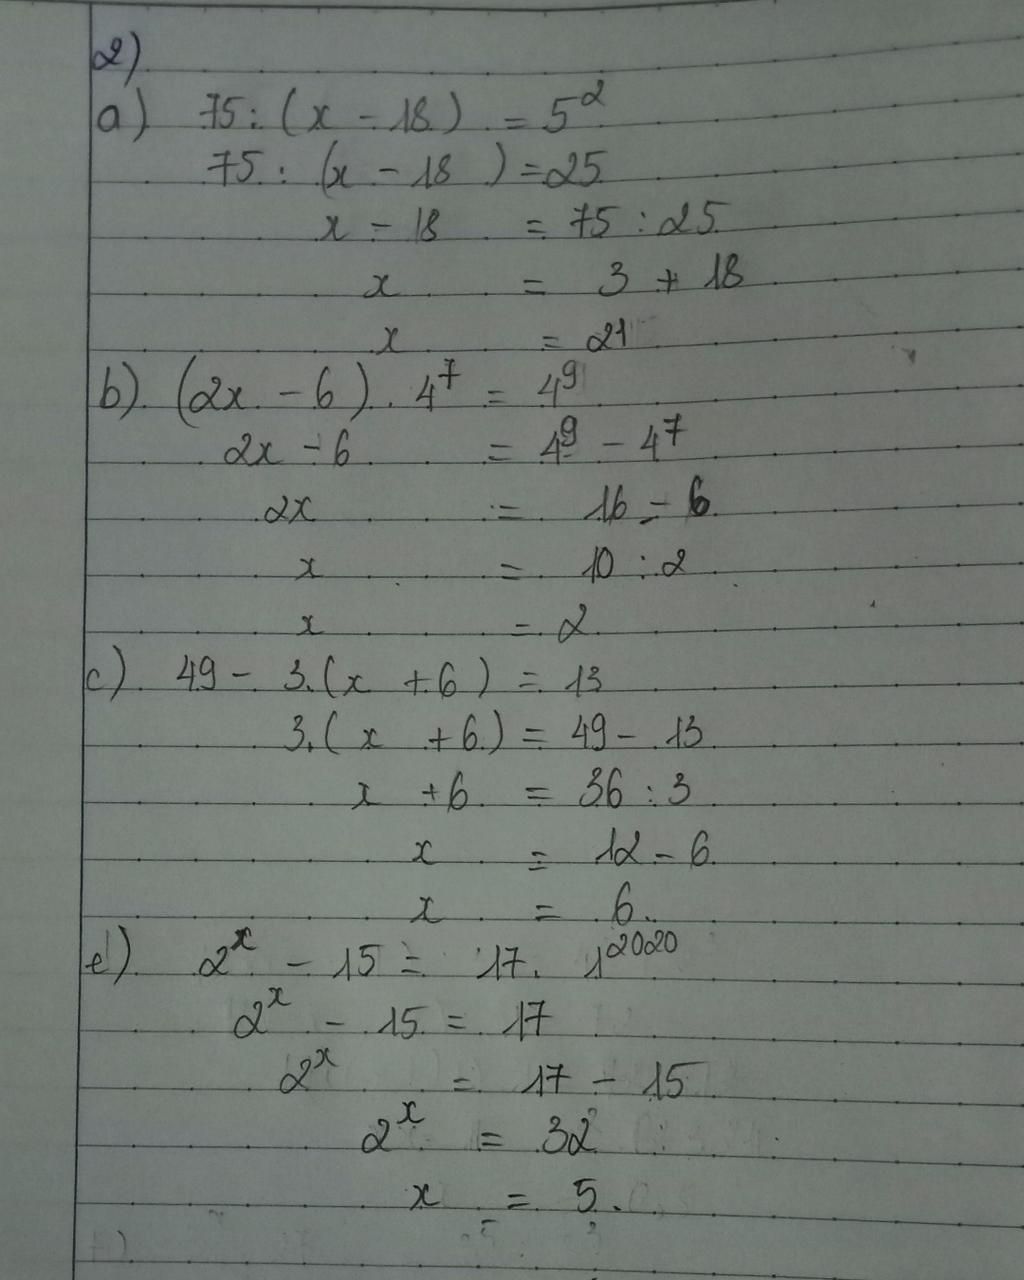 2)
a) 75 : (x - 18) = 5²
75 : (x - 18) = 25
x - 18 = 75 : 25
x = 3 + 18
x = 21
b) (2x - 6) . 4⁷ = 4⁹
2x - 6 = 4⁹ - 4⁷
2x = 16 - 6
x = 10 : 2
x = 2
c) 49 - 3.(x + 6) = 13
3.(x + 6) = 49 - 13
x + 6 = 36 : 3
x = 12 - 6
x = 6.
e) 2ˣ - 15 = 17. 1²⁰²⁰
2ˣ - 15 = 17
2ˣ = 17 - 15
2ˣ = 32
x = 5.